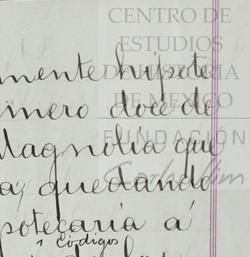 CENTRO DE
ESTUDIOS
DE HISTORIA
DE MEXICO
FUNDACIÓN
mente hipote
mero doce de
Magnolia que
a, quedando
potecaria á
Códigos